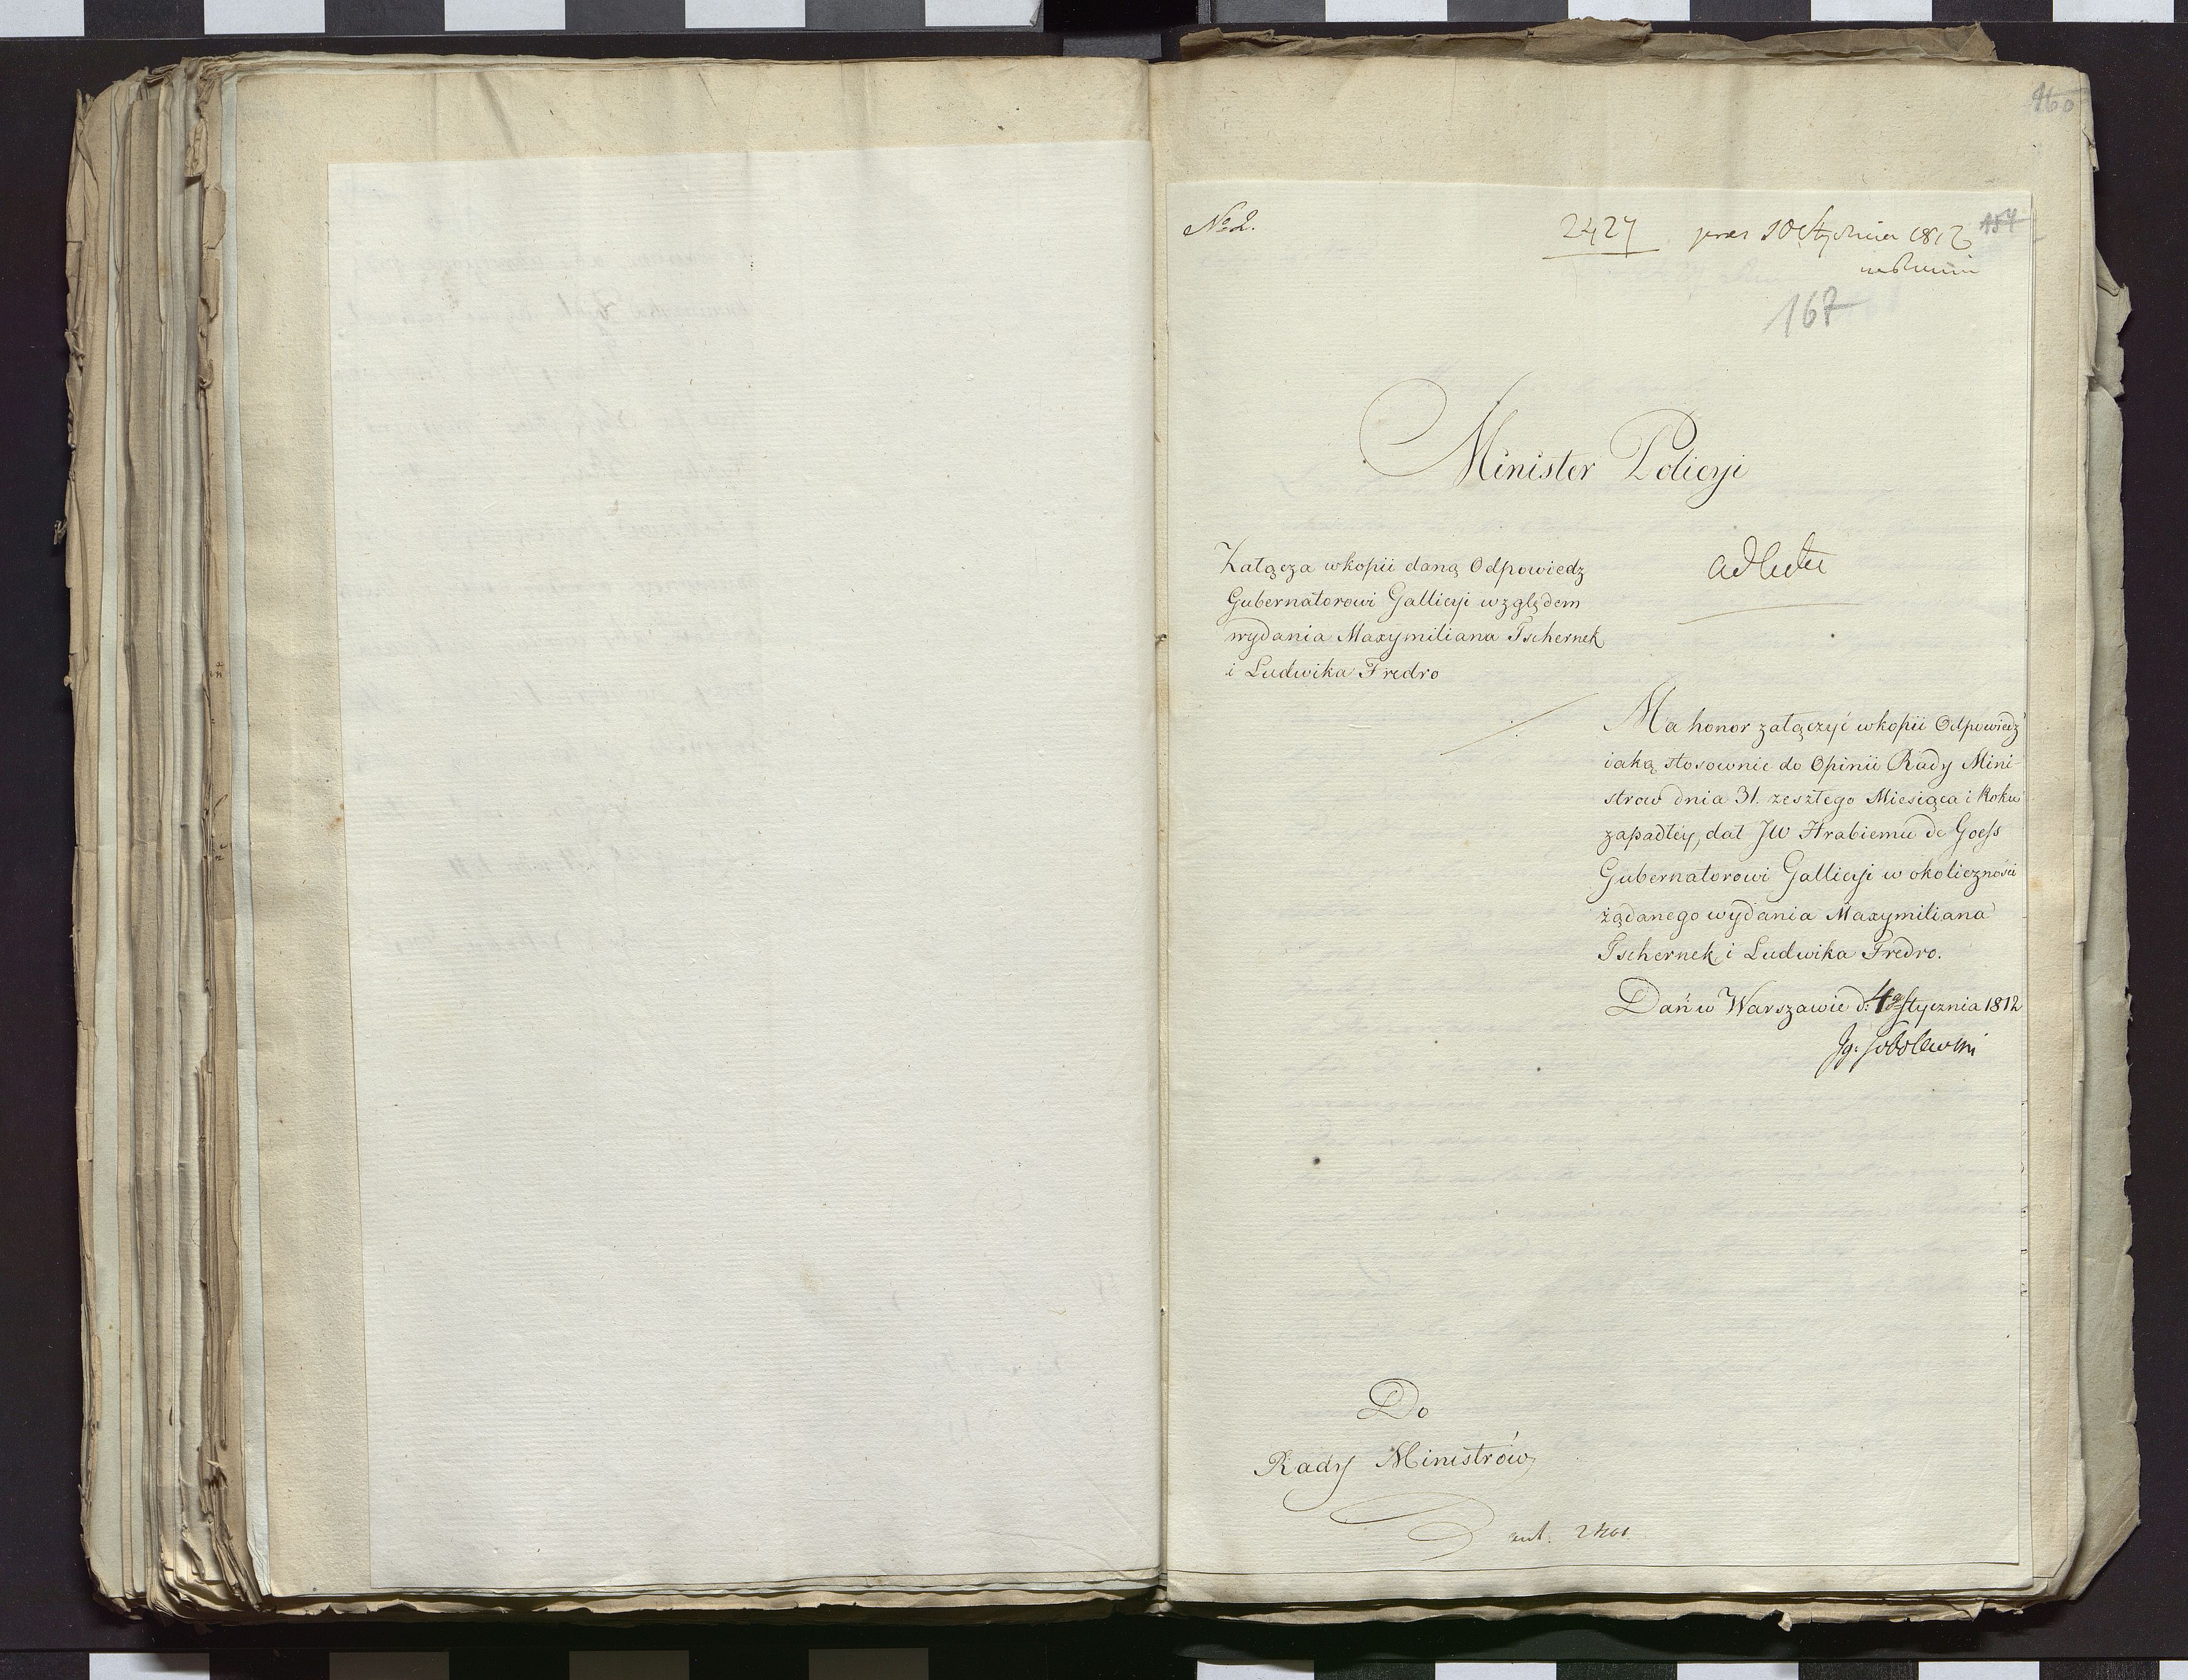 160
No 2.
2427 prez 10 Stycznia 1812
157
167
Minister Policyi
Załącza w kopii daną Odpowiedz
Gubernatorowi Gallicyi względem
wydania Maxymiliana Tschernek
i Ludwika Fredro
ad acta
Ma honor załączyć w kopii Odpowiedź
iaką stosownie do Opinii Rady Mini-
strow dnia 31. zeszłego Miesiąca i Roku
zapadłéy, dał JW Hrabiemu de Goess
Gubernatorowi Gallicyi w okoliczności
żądanego wydania Maxymiliana
Tschernek i Ludwika Fredro.
Dań w Warszawie d: 4go Stycznia 1812
Ig. Sobolewski
Do
Rady Ministrów
ant. 2401